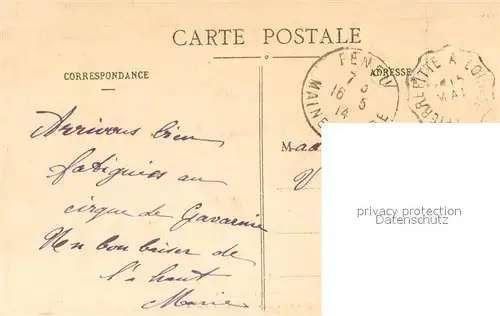 CARTE POSTALE
CORRESPONDANCE
ADRESSE
FENEU
7 5
16 5
14
MAINE
PIERREFITTE A
MAI
Mad
V
Arrivons bien
fatiguées au
cirque de Gavarnie
Un bon baiser de
là haut
Marie
privacy protection
Datenschutz